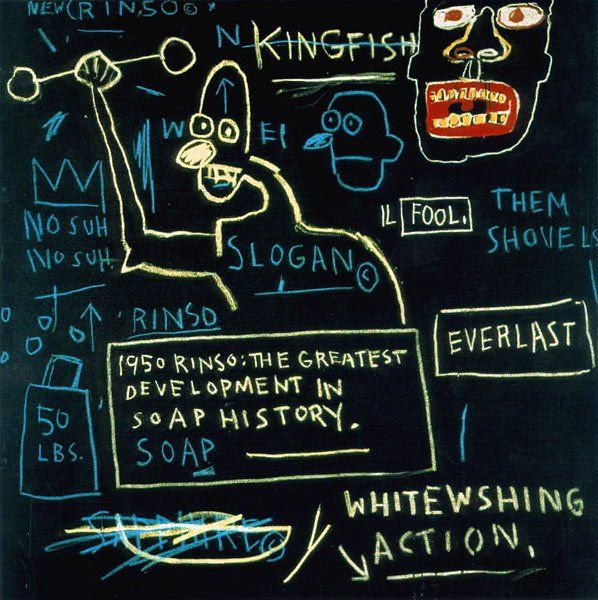 NEW(RINSO©
N KINGFISH
W EI
NO SUH
NO SUH.
IL FOOL.
THEM
SHOVELS
SLOGAN ©
RINSO
EVERLAST
1950 RINSO: THE GREATEST
DEVELOPMENT IN
SOAP HISTORY.
SOAP
50
LBS.
SAPPHIRE ©
WHITEWSHING
ACTION.